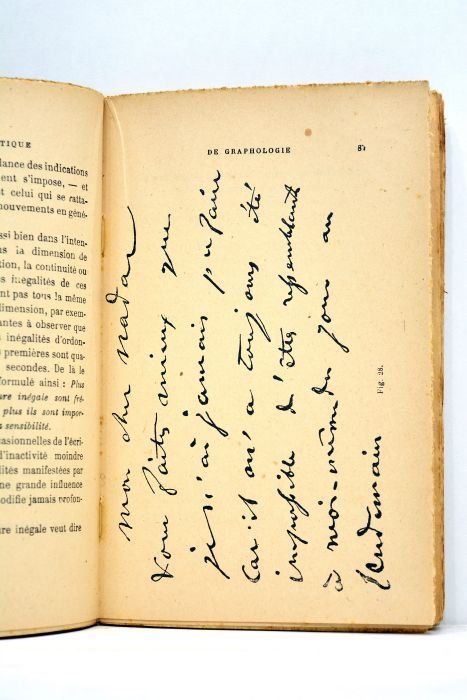 TIQUE
lance des indications
ent s'impose, — et
t celui qui se ratta-
mouvements en géné-
ssi bien dans l'inten-
ns la dimension de
tion, la continuité ou
s inégalités de ces
nt pas tous la même
dimension, par exem-
antes à observer que
s inégalités d'ordon-
s premières sont qua-
secondes. De là le
formulé ainsi : Plus
ure inégale sont fré-
plus ils sont impor-
a sensibilité.
casionnelles de l'écri-
d'inactivité moindre
lités manifestées par
ne grande influence
odifie jamais profon-
ure inégale veut dire
DE GRAPHOLOGIE
mon cher nadar
vous faites mieux que
je n'ai jamais pu faire
car il m'a toujours été
impossible d'être ressemblant
à moi-même du jour au
lendemain
Fig. 28.